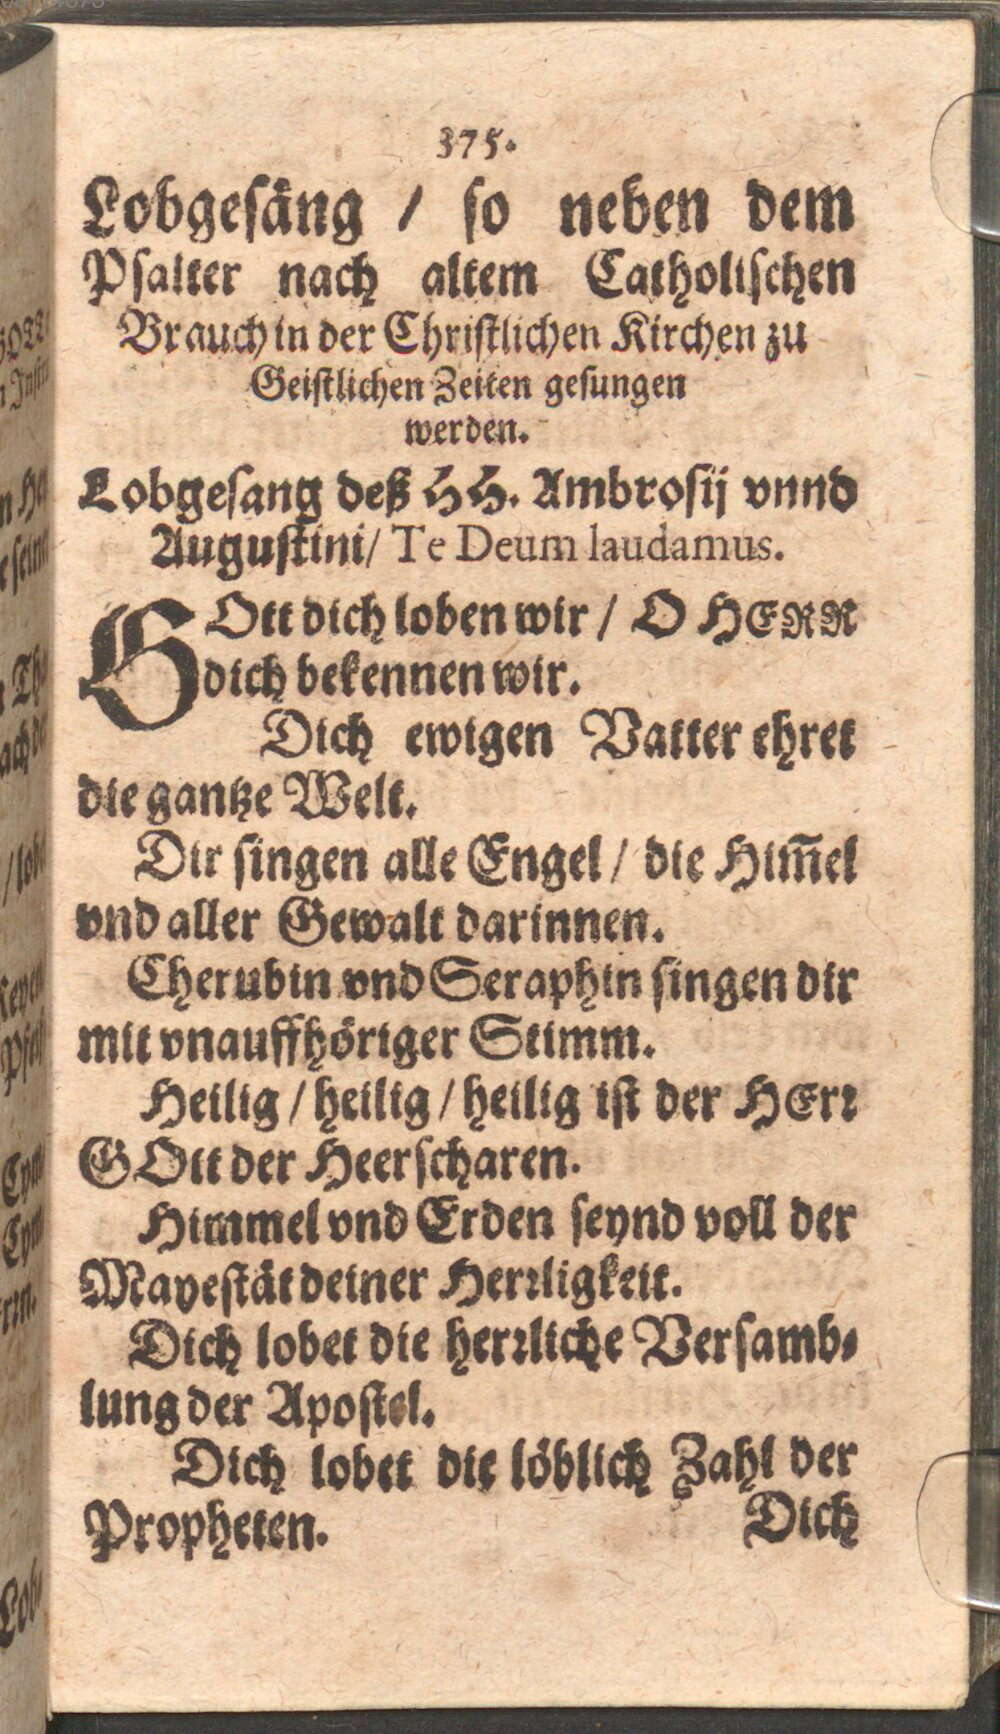 375.
Lobgesäng / so neben dem
Psalter nach altem Catholischen
Brauch in der Christlichen Kirchen zu
Geistlichen Zeiten gesungen
werden.
Lobgesang deß HH. Ambrosij vnnd
Augustini / Te Deum laudamus.
GOtt dich loben wir / O HERR
dich bekennen wir.
Dich ewigen Vatter ehret
die gantze Welt.
Dir singen alle Engel / die Him̃el
vnd aller Gewalt darinnen.
Cherubin vnd Seraphin singen dir
mit vnauffhöriger Stimm.
Heilig / heilig / heilig ist der HErr
GOtt der Heerscharen.
Himmel vnd Erden seynd voll der
Mayestät deiner Herrligkeit.
Dich lobet die herrliche Versamb-
lung der Apostel.
Dich lobet die löblich Zahl der
Propheten.
Dich